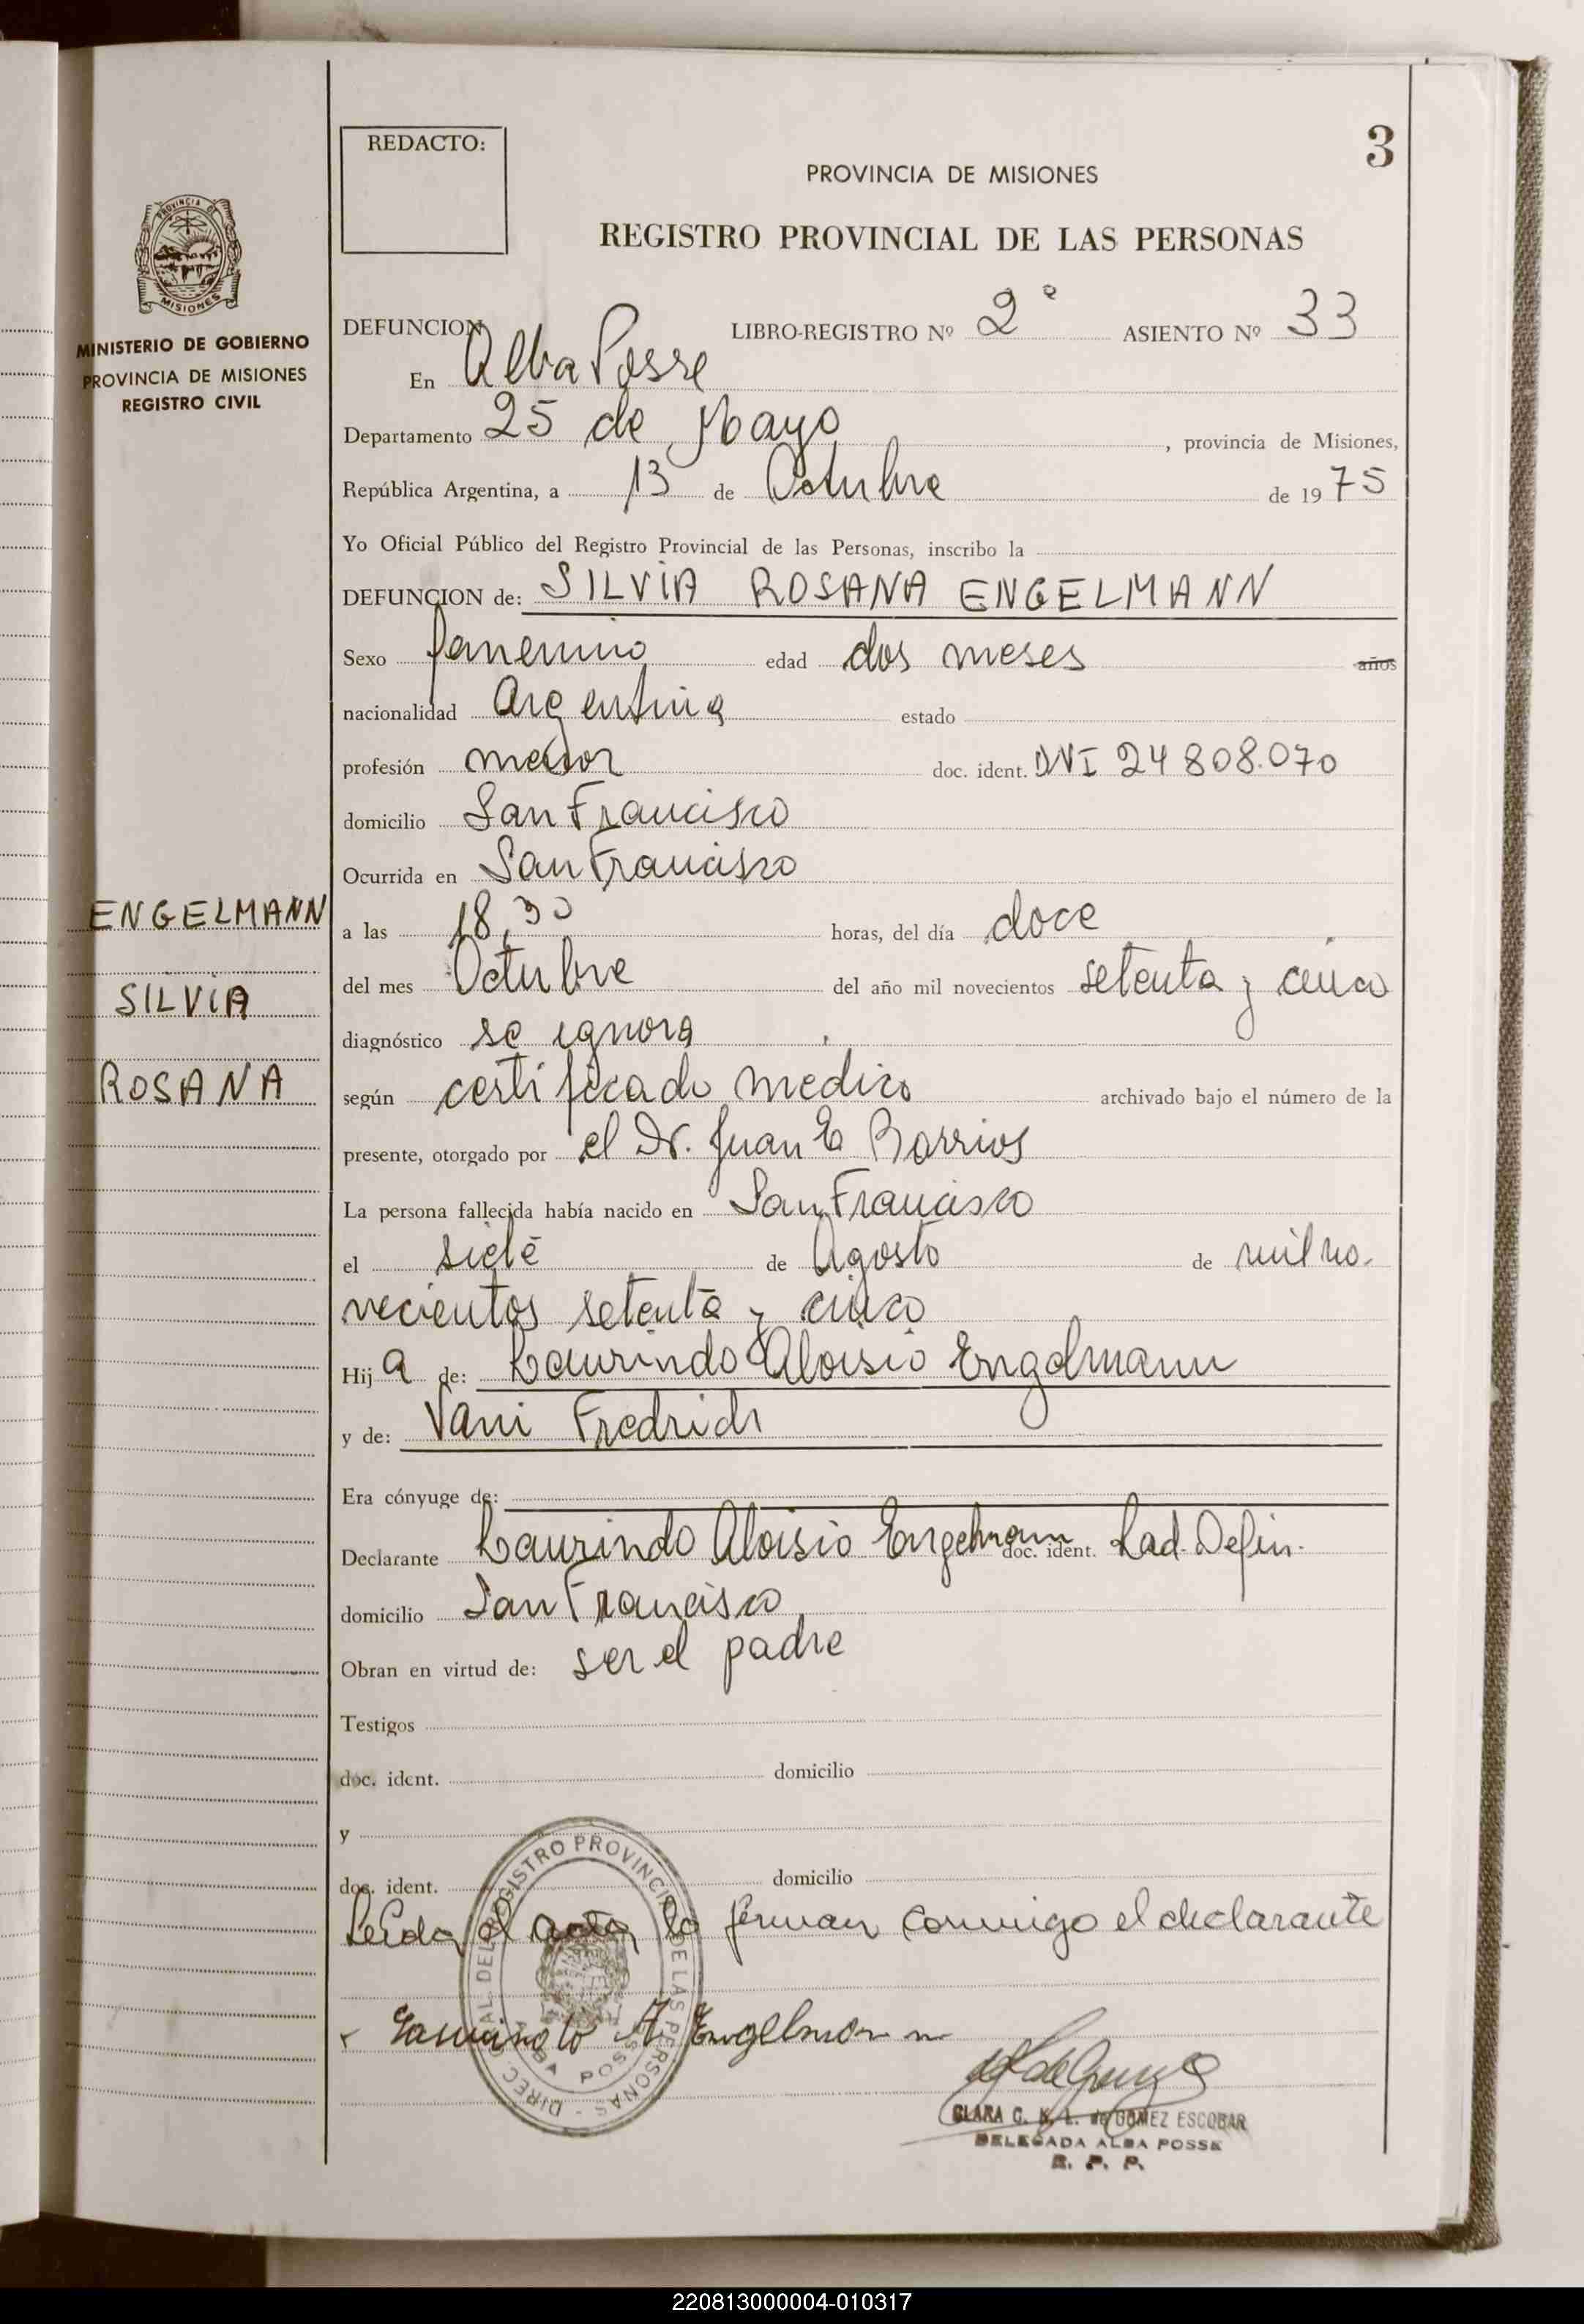 REDACTO:
3
PROVINCIA DE MISIONES
REGISTRO PROVINCIAL DE LAS PERSONAS
PROVINCIA DE
MISIONES
MINISTERIO DE GOBIERNO
PROVINCIA DE MISIONES
REGISTRO CIVIL
DEFUNCION LIBRO-REGISTRO Nº 2º ASIENTO Nº 33
En Alba Posse
Departamento 25 de Mayo, provincia de Misiones,
República Argentina, a 13 de Octubre de 1975
Yo Oficial Público del Registro Provincial de las Personas, inscribo la
DEFUNCION de: SILVIA ROSANA ENGELMANN
Sexo femenino edad dos meses años
nacionalidad Argentina estado
profesión menor doc. ident. DNI 24 808.070
domicilio San Francisco
Ocurrida en San Francisco
ENGELMANN
SILVIA
ROSANA
a las 18,30 horas, del día doce
del mes Octubre del año mil novecientos setenta y cinco
diagnóstico se ignora
según certificado medico archivado bajo el número de la
presente, otorgado por el Dr. Juan E Barrios
La persona fallecida había nacido en San Francisco
el siete de Agosto de mil no-
vecientos setenta y cinco
Hija de: Laurindo Aloisio Engelmann
y de: Vani Fredrich
Era cónyuge de:
Declarante Laurindo Aloisio Engelmann doc. ident. Rad. Defin.
domicilio San Francisco
Obran en virtud de: ser el padre
Testigos
doc. ident. domicilio
y
doc. ident. domicilio
Leida el acta la firman conmigo el declarante
A. Engelmann
DIREC. GRAL. DEL REGISTRO PROVINCIAL DE LAS PERSONAS -
ALBA POSSE
CLARA C. N. L. de GOMEZ ESCOBAR
DELEGADA ALBA POSSE
R. P. P.
220813000004-010317